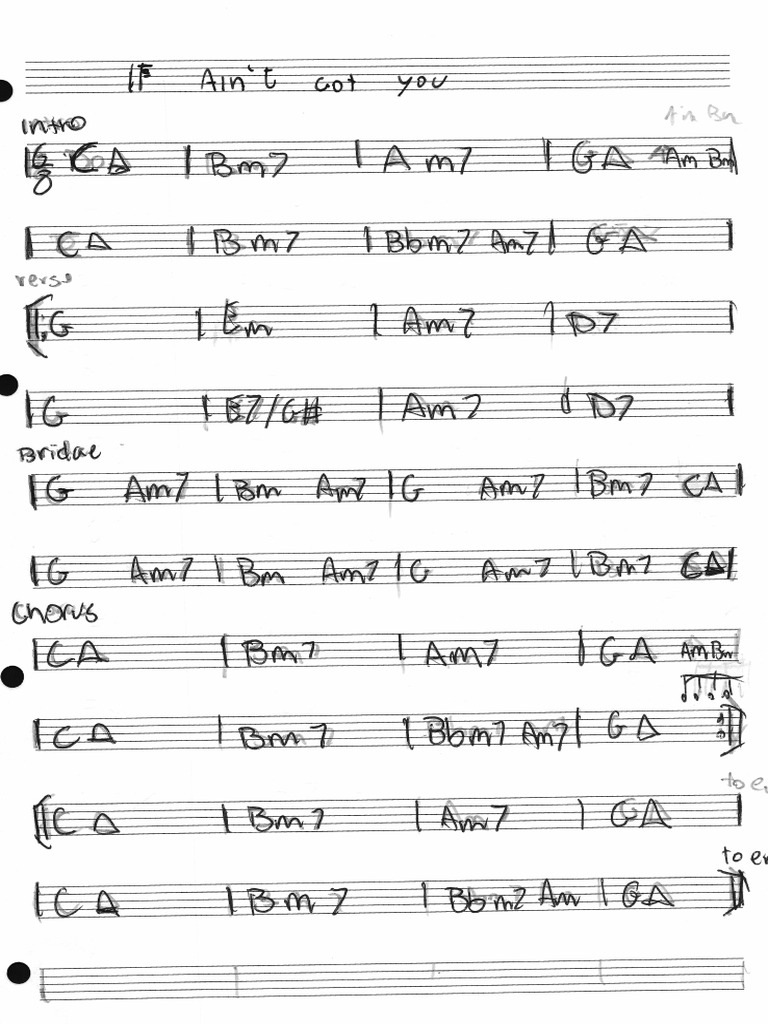 If Ain't Got you
Intro
Am Bm
6/8 C△ | Bm7 | Am7 | G△ Am Bm |
| C△ | Bm7 | Bbm7 Am7 | G△ |
verse
|: G | Em | Am7 | D7 |
| G | E7/G# | Am7 | D7 |
Bridge
| G Am7 | Bm Am7 | G Am7 | Bm7 C△ |
| G Am7 | Bm Am7 | G Am7 | Bm7 C△ |
Chorus
| C△ | Bm7 | Am7 | G△ Am Bm |
| C△ | Bm7 | Bbm7 Am7 | G△ :|
to
|: C△ | Bm7 | Am7 | G△ |
to
| C△ | Bm7 | Bbm7 Am | G△ :|